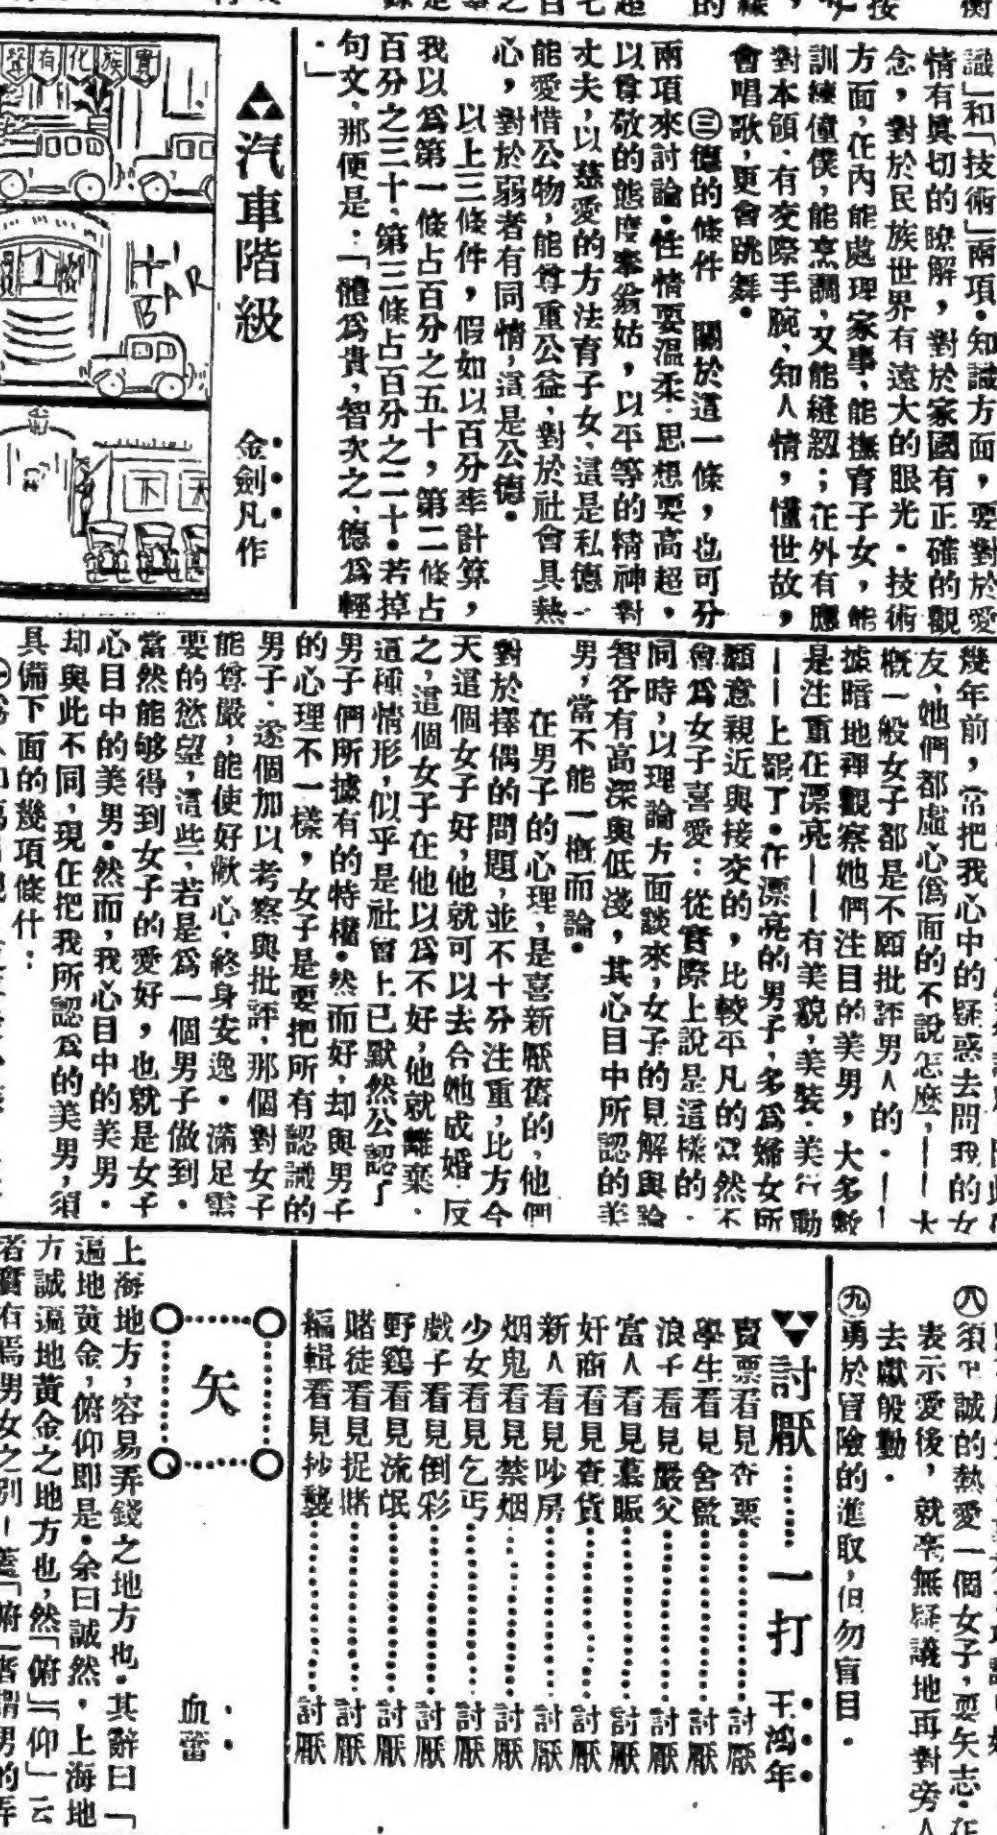 識」和「技術」兩項。知識方面，要對於愛
情有眞切的瞭解，對於家國有正確的觀
念，對於民族世界有遠大的眼光。技術
方面，在內能處理家事、能撫育子女，能
訓練僮僕，能烹調，又能縫紉；在外有應
對本領．有交際手腕、知人情，懂世故，
會唱歌，更會跳舞。
㊂德的條件　關於這一條，也可分
兩項來討論。性情要温柔．思想要高超，
以尊敬的態度事翁姑，以平等的精神對
丈夫，以慈愛的方法育子女、這是私德－
能愛惜公物，能尊重公益、對於社會具熱
心，對於弱者有同情，這是公德。
以上三條件，假如以百分率計算，
我以爲第一條占百分之五十，第二條占
百分之三十、第三條占百分之二十。若掉
句文、那便是．「體爲貴，智次之、德爲輕
．」
汽車階級
金劍凡作
寶族化有
BAR
天下
幾年前，常把我心中的疑惑去問我的女
友，她們都虛心僞面的不說怎麽，——大
槪一般女子都是不願批評男人的．——
據暗地裡觀察她們注目的美男，大多數
是注重在漂亮——有美貌，美裝．美行動
——上罷了。在漂亮的男子，多爲婦女所
願意親近與接交的，比較平凡的當然不
會爲女子喜愛：從實際上說是這樣的．
同時，以理論方面談來，女子的見解與論
智各有高深與低淺，其心目中所認的美
男，當不能一槪而論。
在男子的心理，是喜新厭舊的，他們
對於擇偶的問題，並不十分注重，比方今
天這個女子好，他就可以去合她成婚．反
之，這個女子在他以爲不好，他就離棄．
這種情形，似乎是社會上已默然公認了
男子們所據有的特權。然而好，却與男子
的心理不一樣，女子是要把所有認識的
男子．逐個加以考察與批評．那個對女子
能尊嚴，能使好歡心，終身安逸。滿足需
要的慾望，這些，若是爲一個男子做到．
當然能够得到女子的愛好，也就是女子
心目中的美男。然而，我心目中的美男．
却與此不同，現在把我所認爲的美男，須
具備下面的幾項條什：
㊇須中誠的熱愛一個女子，要矢志．在
表示愛後，就卒無疑議地再對旁人
去獻般勤．
㊈勇於冒險的進取，但勿盲目．
討厭……一打　王鴻年
賣票看見查票………討厭
學生看見舍監………討厭
浪千看見嚴父………討厭
富人看見募賑………討厭
奸商看見查貨………討厭
新人看見吵房………討厭
烟鬼看見禁烟………討厭
少女看見乞丐………討厭
戲子看見倒彩………討厭
野鷄看見流氓………討厭
賭徒看見捉賭………討厭
編輯看見抄襲………討厭
矢
血蕾
上海地方，容易弄錢之地方也。其辭曰「
遍地黃金，俯仰即是。余曰誠然，上海地
方誠遍地黃金之地方也，然「俯」「仰」云
者實有焉男女之別－蓋「俯」者謂男的弄